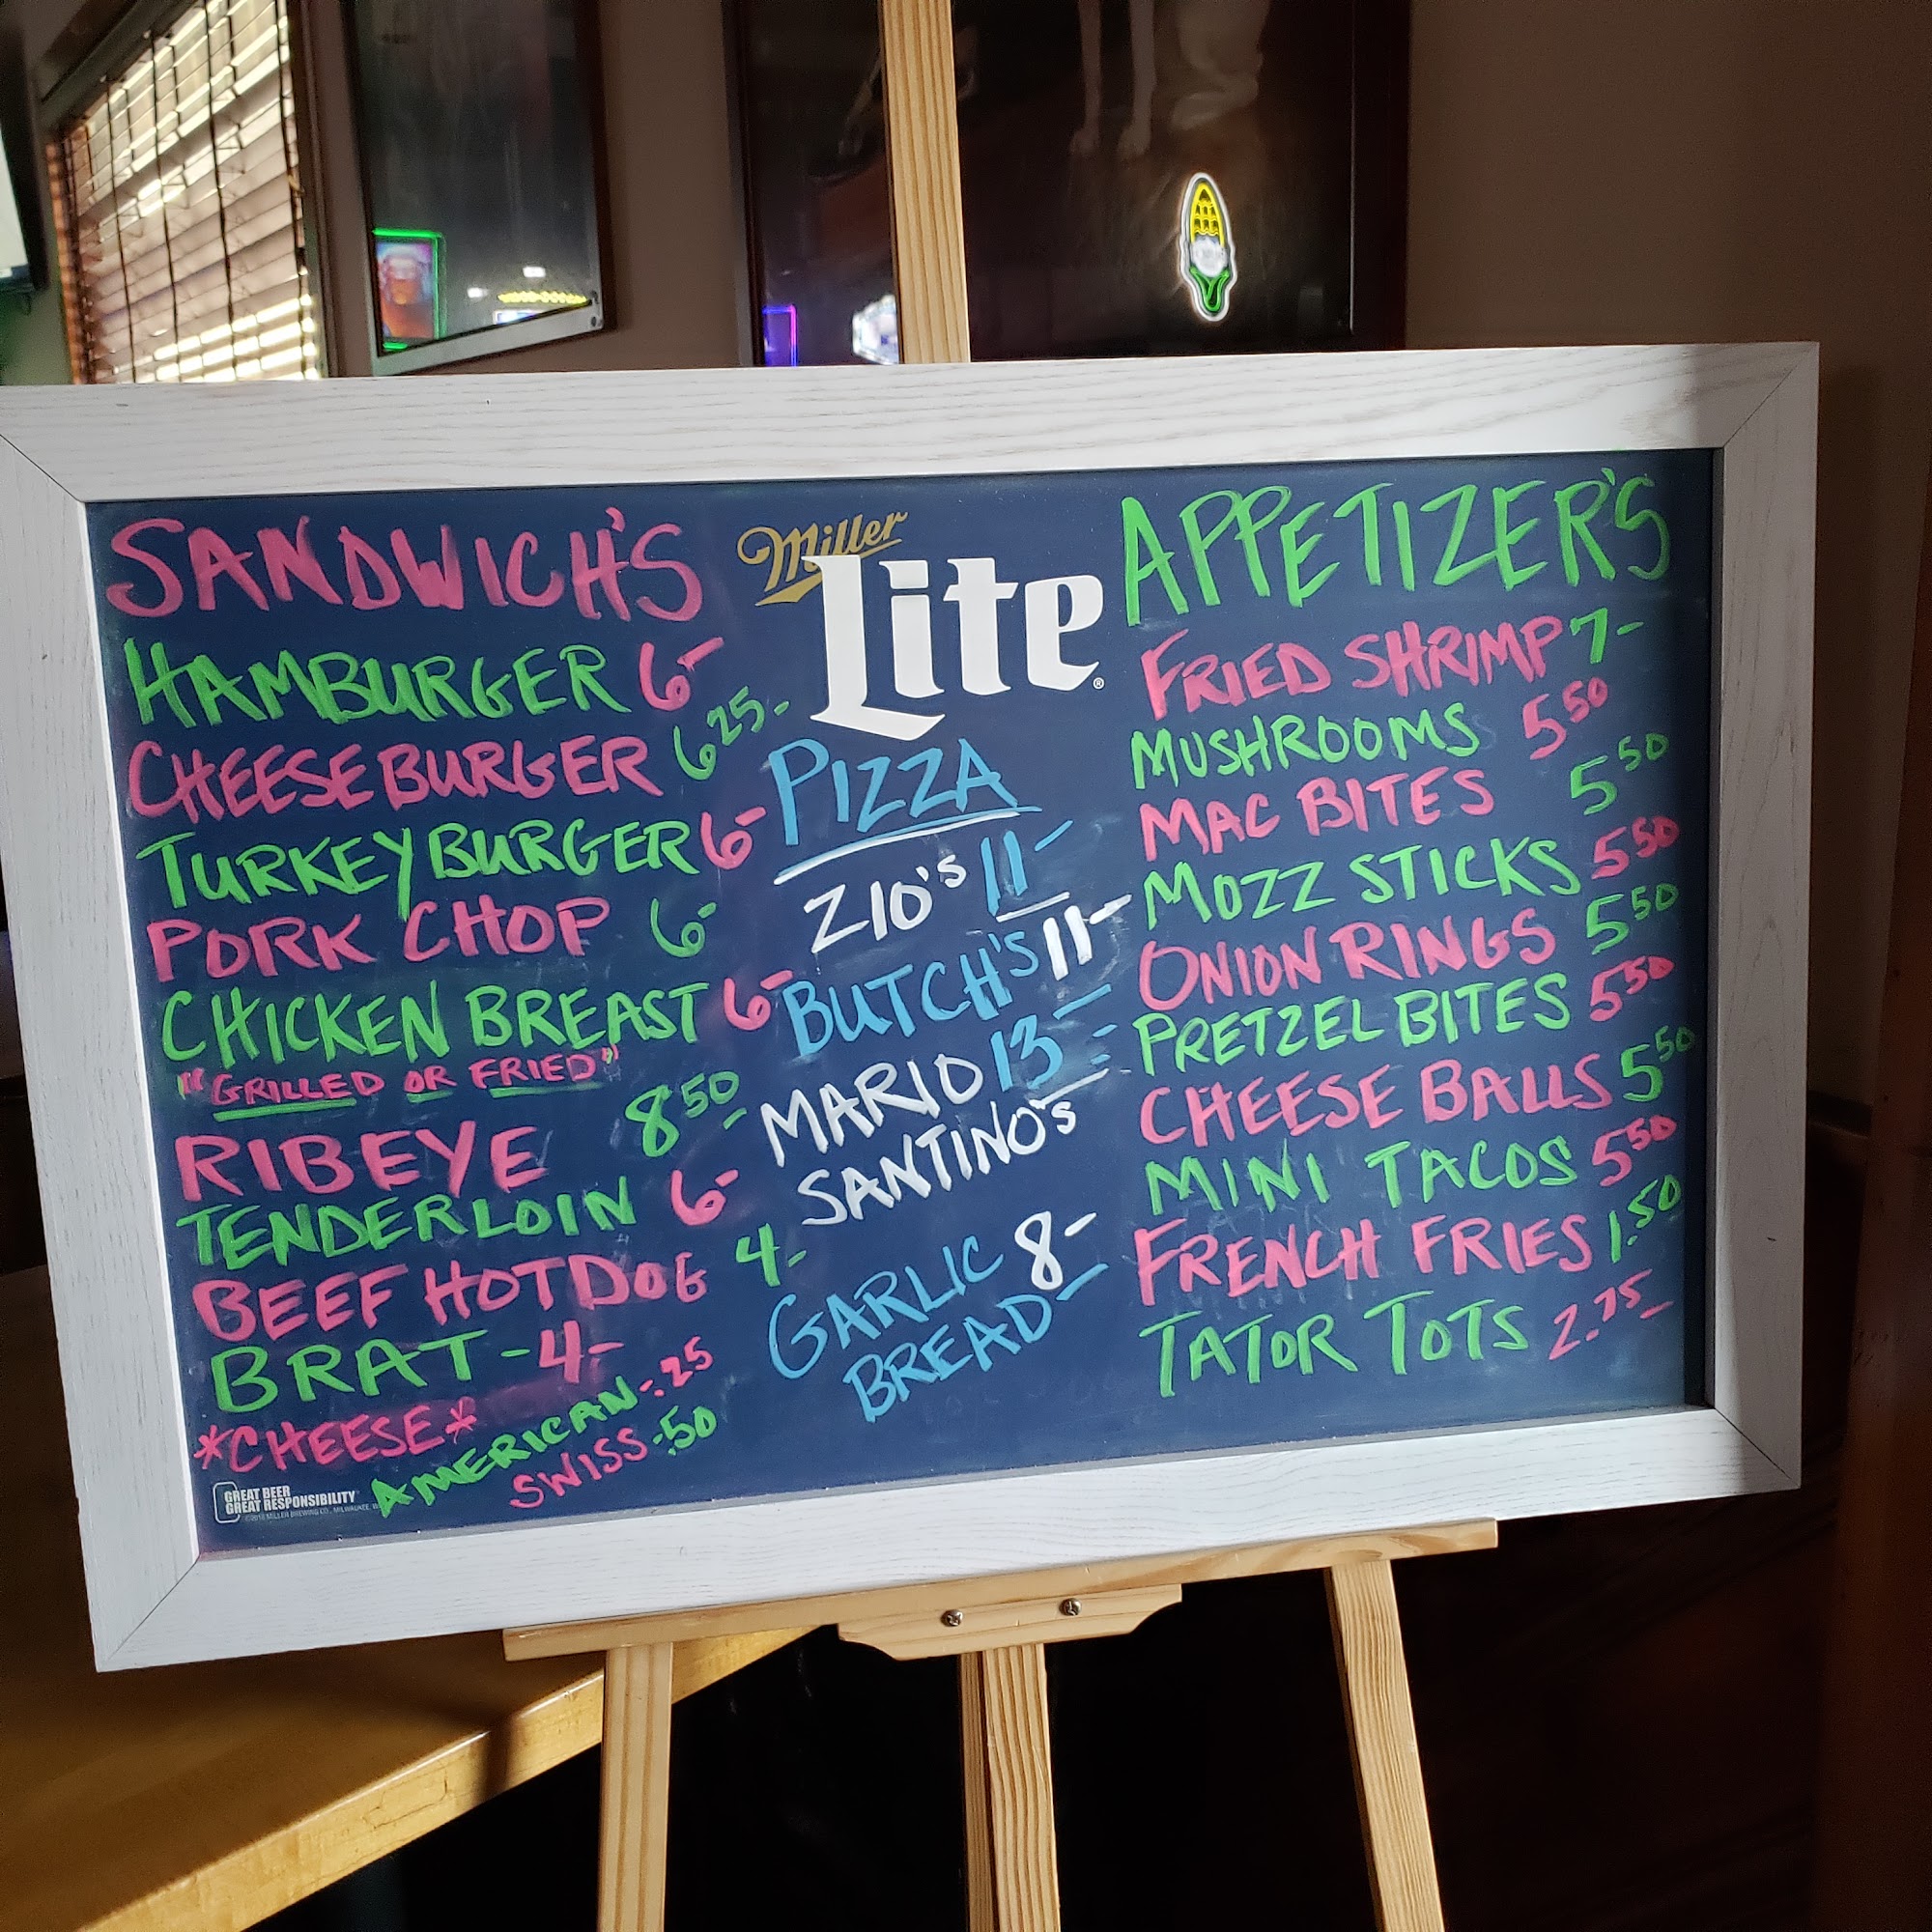 SANDWICH'S
HAMBURGER 6-
CHEESEBURGER 6 25-
TURKEYBURGER 6-
PORK CHOP 6-
CHICKEN BREAST 6-
"GRILLED OR FRIED"
RIBEYE 8 50
TENDERLOIN 6-
BEEF HOTDOG 4-
BRAT - 4-
*CHEESE*
AMERICAN-.25
SWISS-.50
GREAT BEER
GREAT RESPONSIBILITY
©2018 MILLER BREWING CO., MILWAUKEE, W
Miller
Lite®
PIZZA
ZIO'S 11-
BUTCH'S 11-
MARIO 13-
SANTINO'S
GARLIC 8-
BREAD
APPETIZER'S
FRIED SHRIMP 7-
MUSHROOMS 5 50
MAC BITES 5 50
MOZZ STICKS 5 50
ONION RINGS 5 50
PRETZEL BITES 5 50
CHEESE BALLS 5 50
MINI TACOS 5 50
FRENCH FRIES 1.50
TATOR TOTS 2.75-